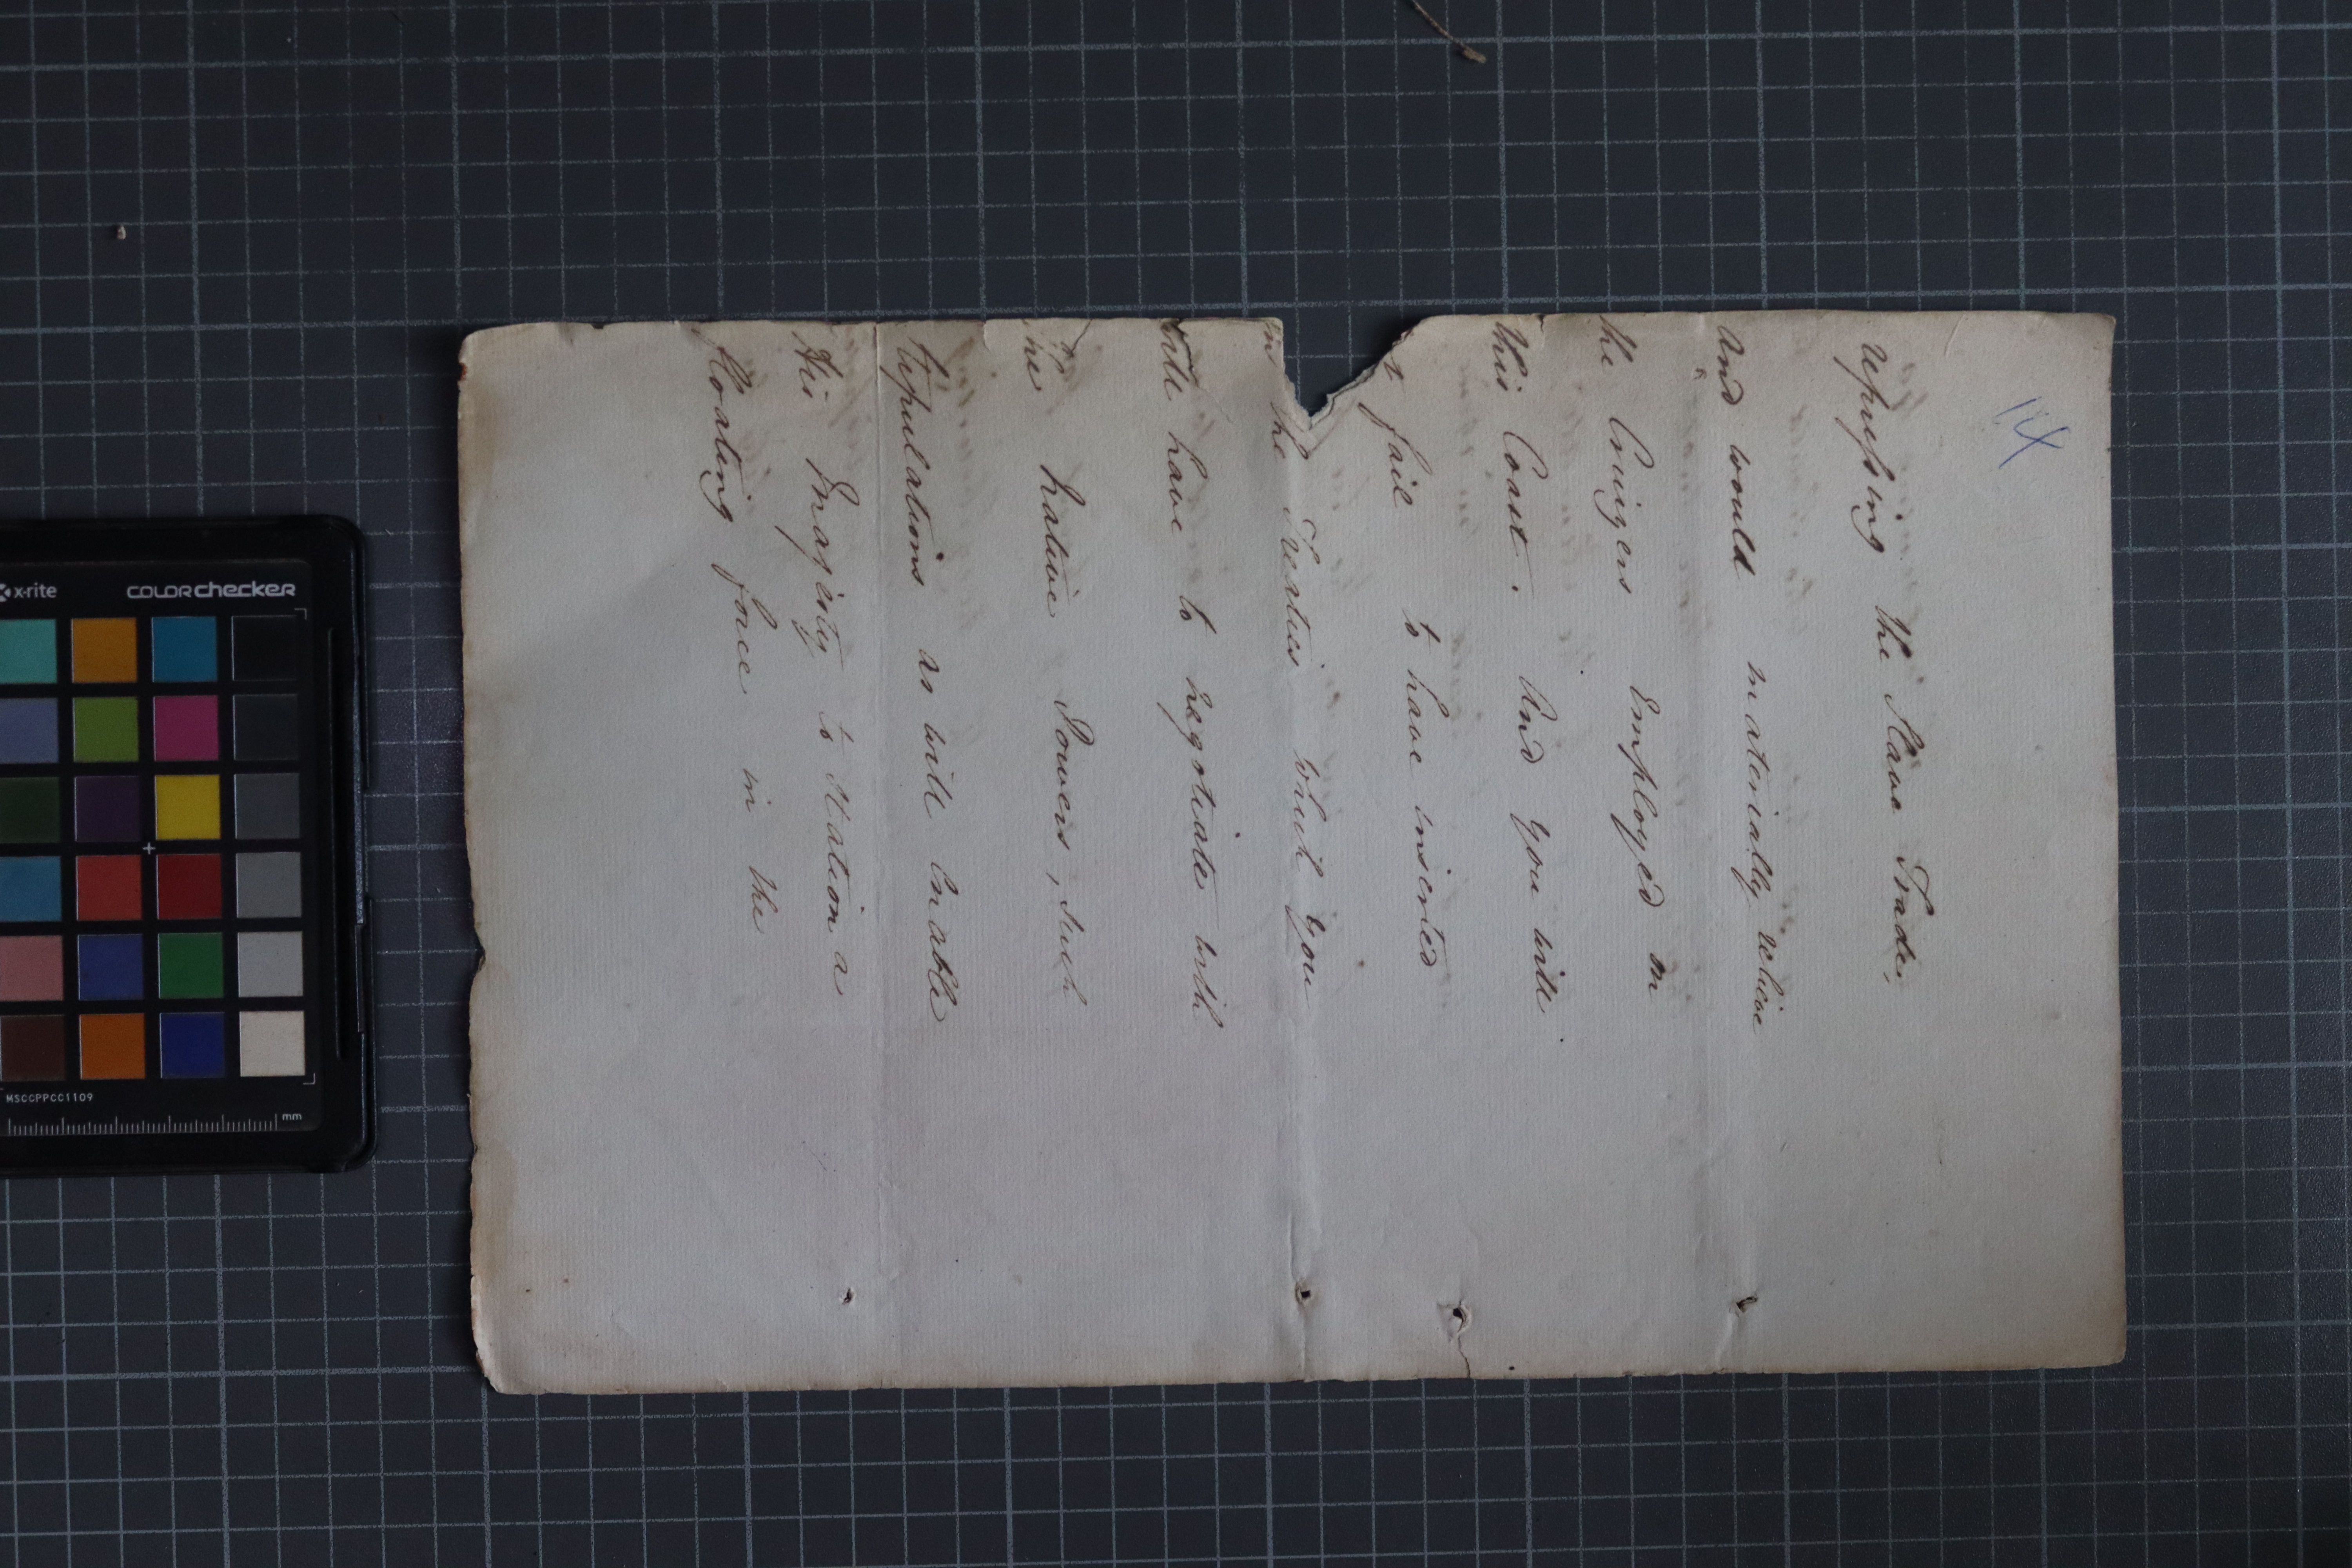 114
repressing the Slave Trade,
And would materially relieve
the Cruizers Employed on
this Coast. And you will
fail to have inserted
in the Treaties which you
will have to negotiate with
the Native Powers, such
Stipulations as will Enable
His Majesty to Station a
floating force in the
x-rite
COLORchecker
MSCCPPCC1109
mm